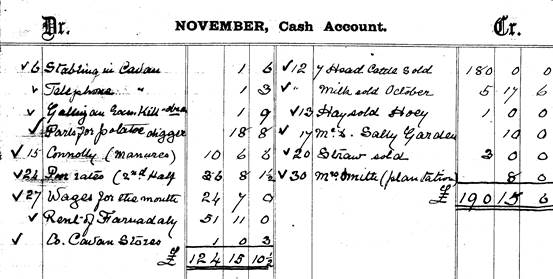 Dr. NOVEMBER, Cash Account. Cr.
✓6 Stabling in Cavan 1 6
✓ Telephone " 1 3
✓ 1 9
✓ Parts for potatoe digger 18 8
✓15 Connolly (Manures) 10 6 6
✓24 Poor rates (2nd Half 36 8 1½
✓27 Wages for the month 24 7 0
✓ Rent of Farnadaly 51 11 0
✓ Co. Cavan Stores 1 0 3
£ 124 15 10½
✓12 7 Head Cattle Sold 180 0 0
✓" Milk sold October 5 17 6
✓13 Hay sold Hoey 1 0 0
✓17 Sally Garden 10 0
✓20 Straw sold 3 0 0
✓30 Mrs Smith (plantation) 8 0
£ 190 15 6